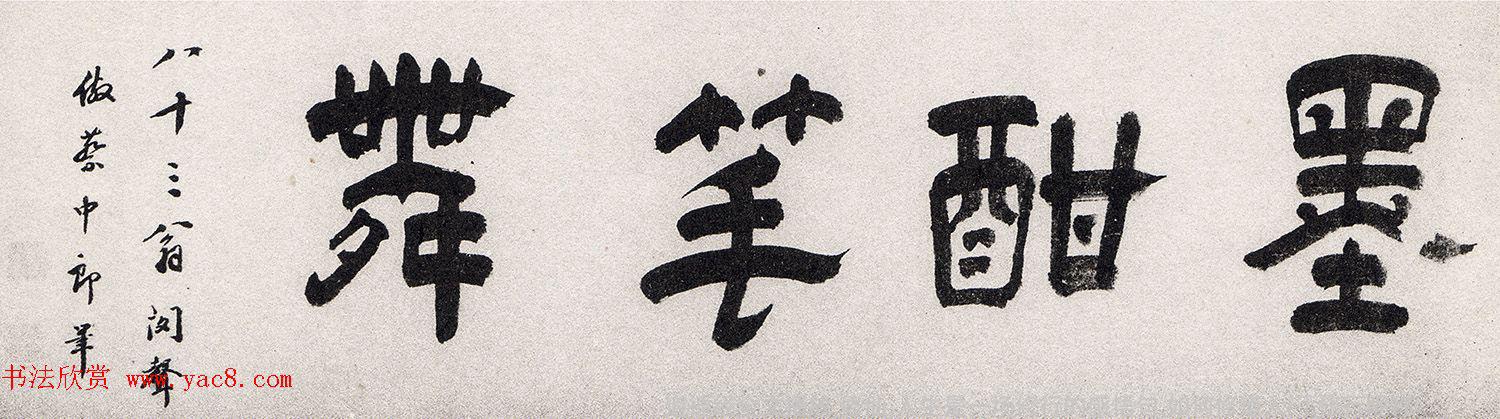 墨酣笔舞
八十三翁閬聲
倣蔡中郎筆
书法欣赏 www.yac8.com